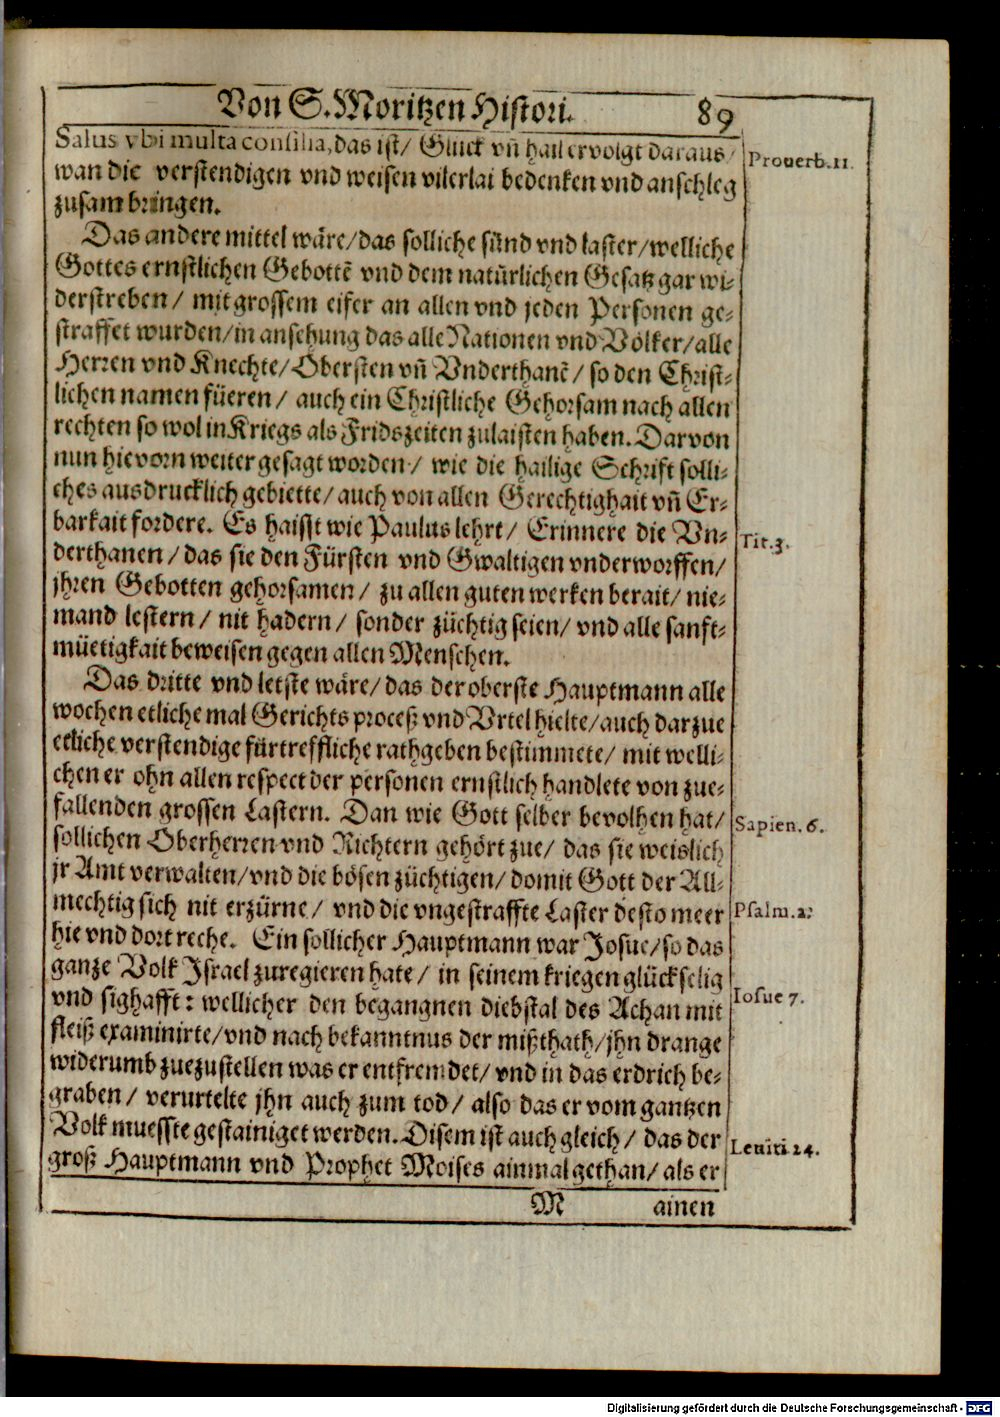 Von S. Moritzen Histori. 89
Salus vbi multa consilia, das ist/ Glück vn̄ hail ervolgt daraus/
Prouerb. 11.
wan die verstendigen vnd weisen vilerlai bedenken vnd anschleg
zusam bringen.
Das andere mittel wäre/ das solliche sünd vnd laster/ welliche
Gottes ernstlichen Gebottē vnd dem natürlichen Gesatz gar wi-
derstreben/ mit grossem eifer an allen vnd jeden Personen ge-
straffet wurden/ in ansehung das alle Nationen vnd Völker/ alle
Herren vnd Knechte/ Obersten vn̄ Vnderthanē/ so den Christ-
lichen namen füeren/ auch ein Christliche Gehorsam nach allen
rechten so wol in Kriegs als Fridszeiten zulaisten haben. Darvon
nun hievorn weiter gesagt worden/ wie die hailige Schrift solli-
ches ausdrucklich gebiette/ auch von allen Gerechtighait vn̄ Er-
barkait fordere. Es haisst wie Paulus lehrt/ Erinnere die Vn-
Tit. 3.
derthanen/ das sie den Fürsten vnd Gwaltigen vnderworffen/
jhren Gebotten gehorsamen/ zu allen guten werken berait/ nie-
mand lestern/ nit hadern/ sonder züchtig seien/ vnd alle sanft-
müetigkait beweisen gegen allen Menschen.
Das dritte vnd letste wäre/ das der oberste Hauptmann alle
wochen etliche mal Gerichts proceß vnd Vrtel hielte/ auch darzue
etliche verstendige fürtreffliche rathgeben bestimmete/ mit welli-
chen er ohn allen respect der personen ernstlich handlete von zue-
fallenden grossen Lastern. Dan wie Gott selber bevolhen hat/
Sapien. 6.
sollichen Oberherren vnd Richtern gehört zue/ das sie weislich
jr Amt verwalten/ vnd die bösen züchtigen/ domit Gott der All-
mechtig sich nit erzürne/ vnd die vngestraffte Laster desto meer
Psalm. 2.
hie vnd dort reche. Ein sollicher Hauptmann war Josue/ so das
ganze Volk Jsrael zuregieren hate/ in seinem kriegen glückselig
vnd sighafft: wellicher den begangnen diebstal des Achan mit
Iosue 7.
fleiß examinirte/ vnd nach bekanntnus der mißthath/ jhn drange
widerumb zuezustellen was er entfremdet/ vnd in das erdrich be-
graben/ verurtelte jhn auch zum tod/ also das er vom gantzen
Volk muesste gestainiget werden. Disem ist auch gleich/ das der
Leuiti 24.
groß Hauptmann vnd Prophet Moises ainmal gethan/ als er
M ainen
Digitalisierung gefördert durch die Deutsche Forschungsgemeinschaft - DFG